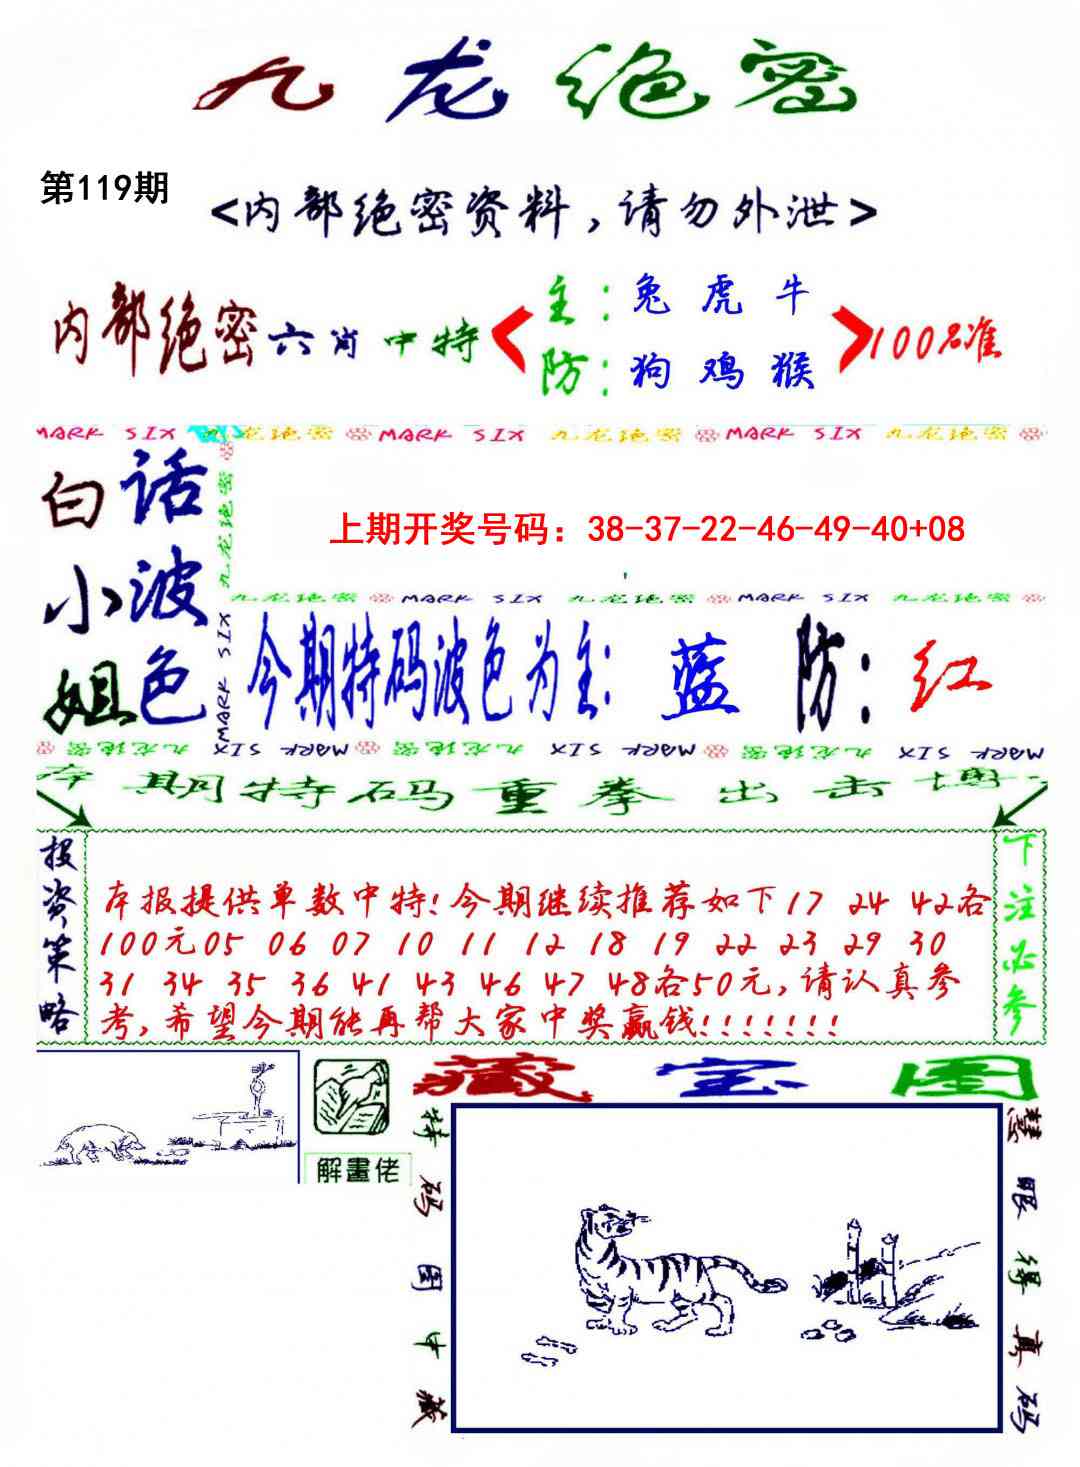 九龙绝密
第119期
<内部绝密资料,请勿外泄>
内部绝密六肖中特
主:兔虎牛
防:狗鸡猴
100%准
MARK SIX 九龙绝密 MARK SIX 九龙绝密 MARK SIX 九龙绝密
白话小波姐色
九龙绝密
MARK SIX
上期开奖号码：38-37-22-46-49-40+08
九龙绝密 MARK SIX 九龙绝密 MARK SIX 九龙绝密
今期特码波色为主:蓝 防:红
九龙绝密 MARK SIX 九龙绝密 MARK SIX 九龙绝密 MARK SIX
本期特码重拳出击博
投资策略
本报提供单数中特!今期继续推荐如下17 24 42各
100元05 06 07 10 11 12 18 19 22 23 29 30
31 34 35 36 41 43 46 47 48各50元,请认真参
考,希望今期能再帮大家中奖赢钱!!!!!!!
下注必参
解畫佬
藏宝图
特码图中藏
慧眼得真码